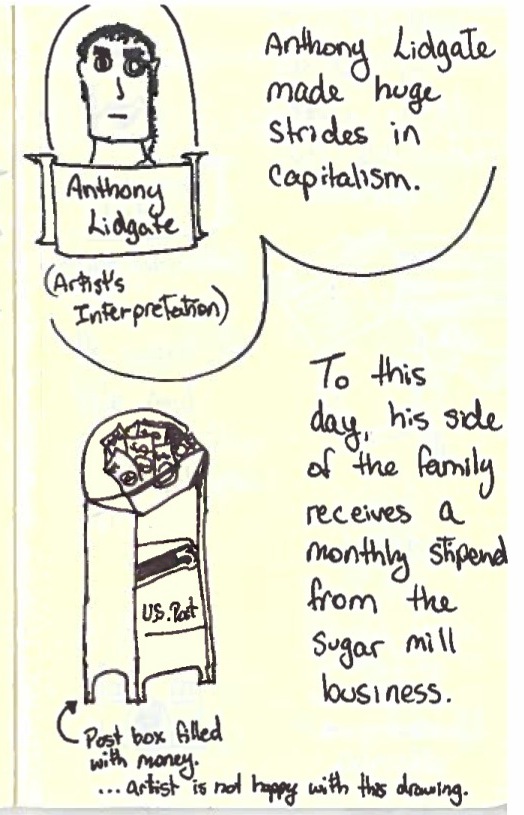 Anthony Lidgate
made huge
strides in
capitalism.
Anthony
Lidgate
(Artist's
Interpretation)
To this
day, his side
of the family
receives a
monthly stipend
from the
sugar mill
business.
U.S. Post
Post box filled
with money.
...artist is not happy with this drawing.